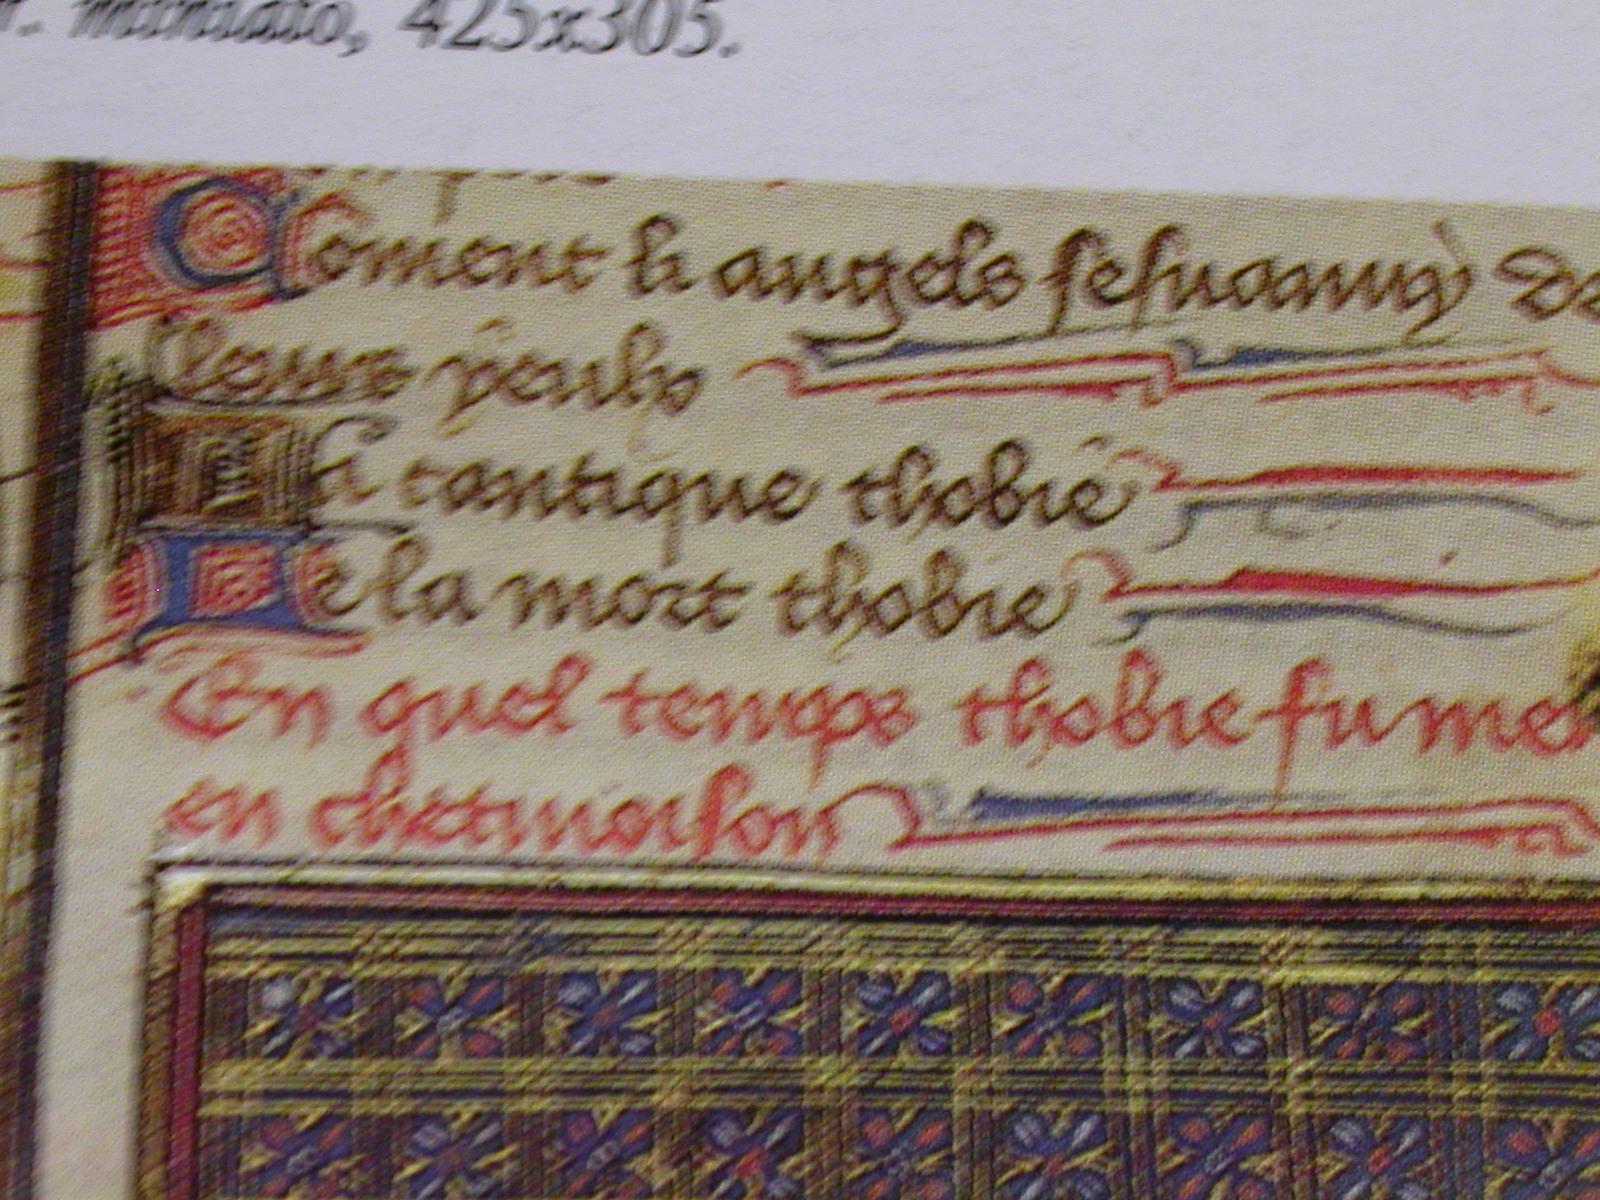 miniato, 425x305.
Coment li angels sesuanuy de
leurs yeulx
Li cantique thobie
De la mort thobie
En quel temps thobie fu me
en chetiuoison